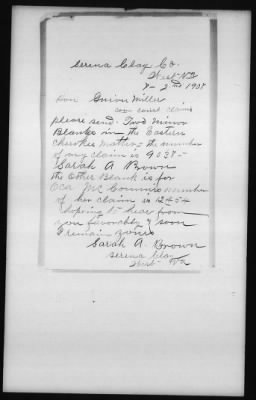 Serena Clay Co.
West Va
8 - 2nd 1908
Hon Guion Miller
court claims
please send. Two Minor
Blanks in the Eastern
cherokee matter, the number
of my claim is 9038 -
Sarah A Brown
the Other Blank is for
Mc Commis number
of her claim is 12454
hoping to hear from
you favorably & soon
I remain yours
Sarah A. Brown
Serena Clay
West Va